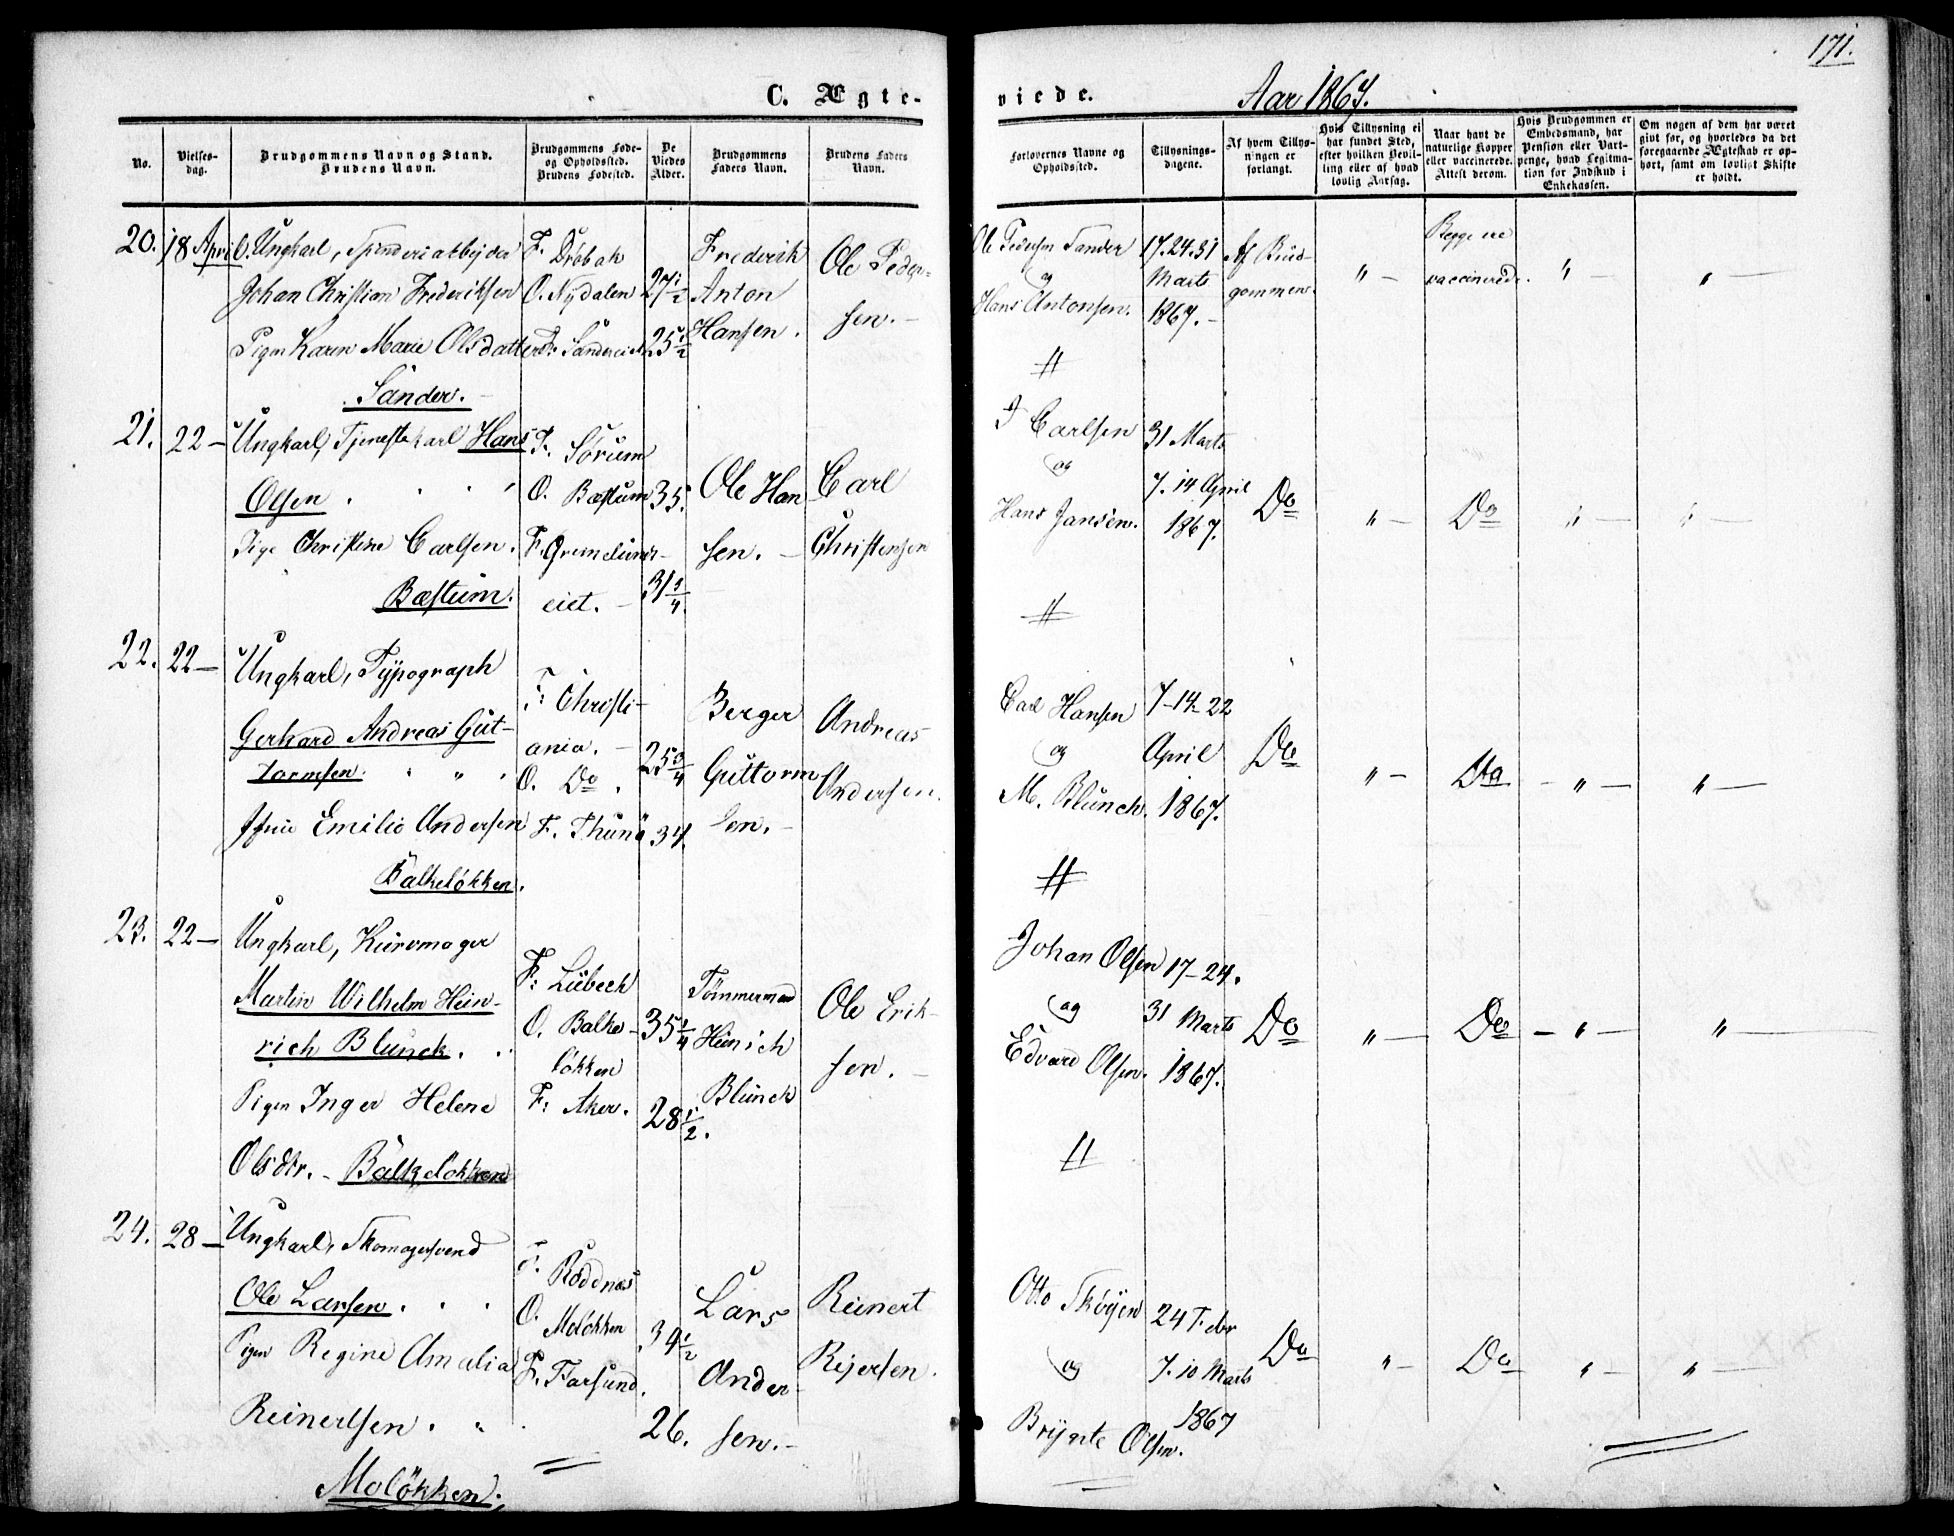 171.
C. Ægte-
viede.
Aar 1867.
No.
Vielses-
dag.
Brudgommens Navn og Stand.
Brudens Navn.
Brudgommens Føde-
og Opholdssted.
Brudens Fødested.
De
Viedes
Alder.
Brudgommens
Faders Navn.
Brudens Faders
Navn.
Forlovernes Navne og
Opholdssted.
Tillysnings-
dagene.
Af hvem Tillys-
ningen er
forlangt.
Hvis Tillysning ei
har fundet Sted,
efter hvilken Bevil-
ling eller af hvad
lovlig Aarsag.
Naar havt de
naturlige Kopper
eller vaccinerede.
Attest derom.
Hvis Brudgommen er
Embedsmand, har
Pension eller Vart-
penge, hvad Legitima-
tion for Indskud i
Enkekassen.
Om nogen af dem har været
givt før, og hvorledes da det
foregaaende Ægteskab er op-
hørt, samt om lovligt Skifte
er holdt.
20. 18 April. Ungkarl, Spinderiarbejder
Johan Christian Frederiksen
Pigen Karen Marie Olsdatter
Sander.
F. Drøbak
O. Nydalen
F. Sandereiet
27 1/2
25 1/2
Frederik
Anton
Hansen.
Ole Peder-
sen.
Ole Pedersen Sander
og
Hans Antonsen.
17. 24. 31
Marts
1867.
Af Brud-
gommen.
" Begge ere
vaccinerede. " "
21. 22 – Ungkarl, Tjenestekarl Hans
Olsen
Pige Christine Carlsen.
Bæstum.
F. Sørum
O. Bæstum
F. Grimelunds-
eiet.
35.
31 3/4.
Ole Han
sen.
Carl
Christensen
Carlsen
og
Hans Jansen.
31 Marts
7. 14 April
1867.
Do " Do " "
22. 22 – Ungkarl, Typograph
Gerhard Andreas Gut-
tormsen.
Emilie Andersen
Balkeløkken.
F. Christi-
ania.
O. Do.
F. Thunø
25 3/4
34.
Berger
Guttorm
sen.
Andreas
Andersen.
Carl Hansen
og
M. Blunck.
7–14–22
April
1867.
Do " Do " "
23. 22 – Ungkarl, Kurvmager
Martin Wilhelm Hein-
rich Blunck.
Pigen Inger Helene
Olsdtr. – Balkeløkken
F: Lübeck
O. Balke-
løkken
F: Aker.
35 1/4
28 1/2.
Tømmermand
Heinrich
Blunck
Ole Erik-
sen.
Johan Olsen
og
Edvard Olsen.
17–24.
31 Marts
1867.
Do " Do " "
24. 28 – Ungkarl, Skomagersvend
Ole Larsen
Pigen Regine Amalia
Reinertsen.
Moløkken.
F. Roddnæs
O. Moløkken
F. Farsund.
34 1/2
26.
Lars
Ander-
sen.
Reinert
Rejersen.
Otto Skøyen
og
Brynte Olsen.
24 Febr
7. 10 Marts
1867
Do " Do " "